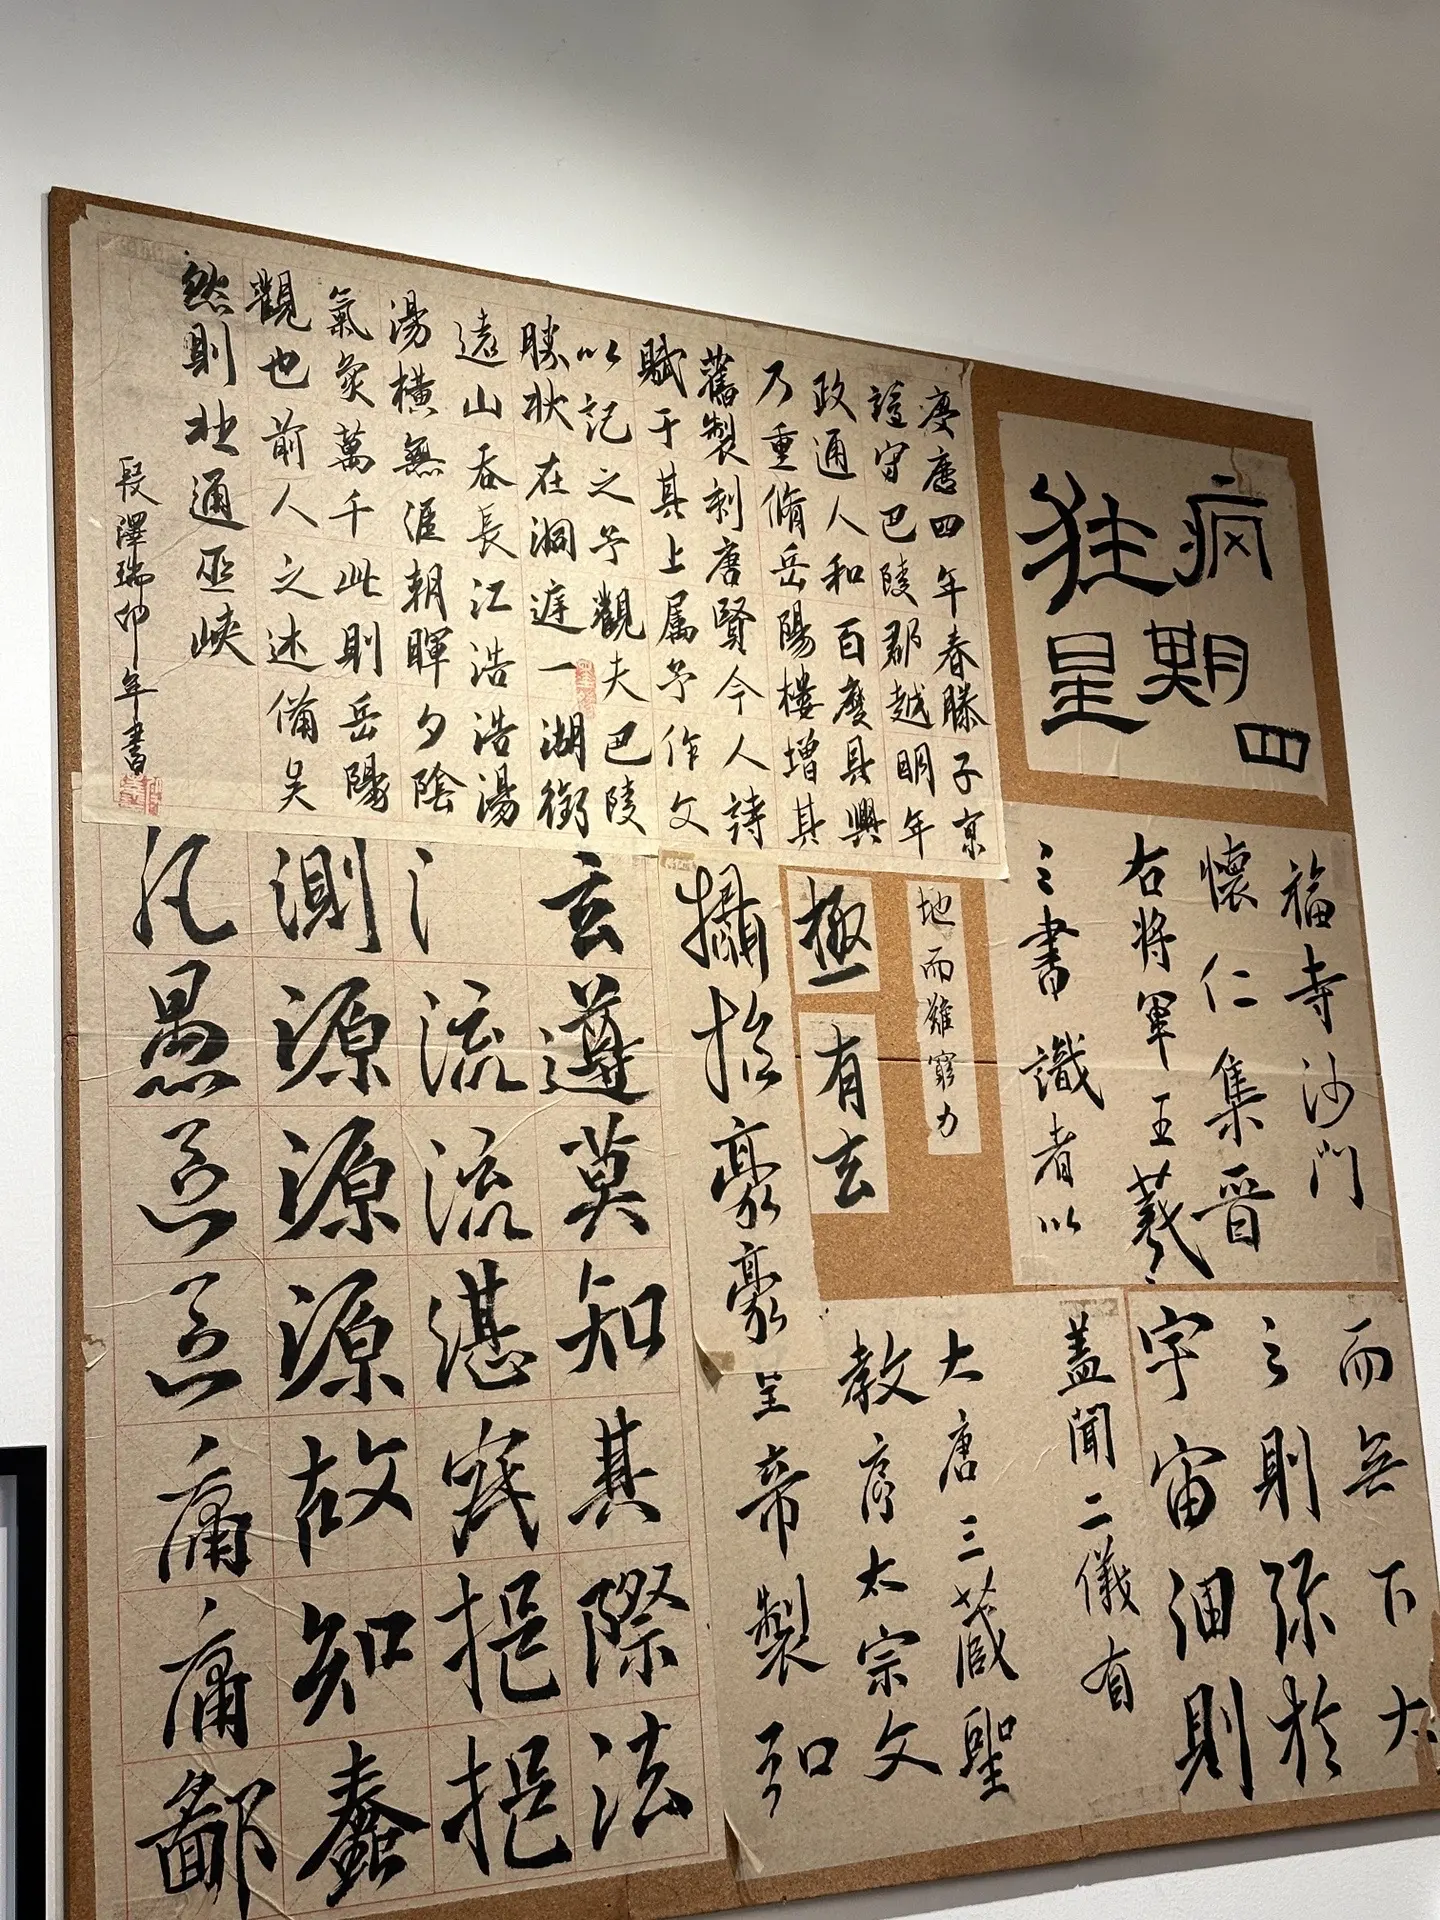 疯狂
星期
四
慶曆四年春滕子京
謫守巴陵郡越明年
政通人和百廢具興
乃重脩岳陽樓增其
舊製刻唐賢今人詩
賦于其上属予作文
以記之予觀夫巴陵
勝狀在洞庭一湖銜
遠山吞長江浩浩湯
湯橫無涯朝暉夕陰
氣象萬千此則岳陽
觀也前人之述備矣
然則北通巫峽
段澤瑞卯年書
福寺沙門
懷仁集晋
右將軍王羲
之書識者以
地而難窮力
極
有玄
攝豪豪
玄遵莫知其際法
流流湛寂挹挹
測源源源故知蠢
凡愚區區庸庸鄙
而無下大
之則弥於
宇宙細則
蓋聞二儀有
大唐三藏聖
教序太宗文
皇帝製